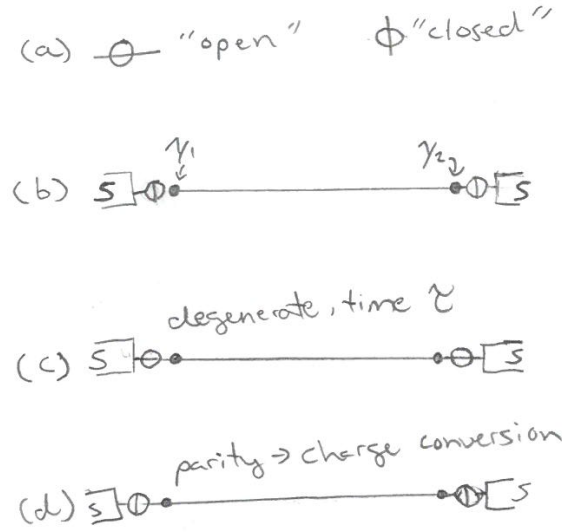 (a) "open" "closed"
γ1 γ2
(b) S S
degenerate, time τ
(c) S S
parity → charge conversion
(d) S S